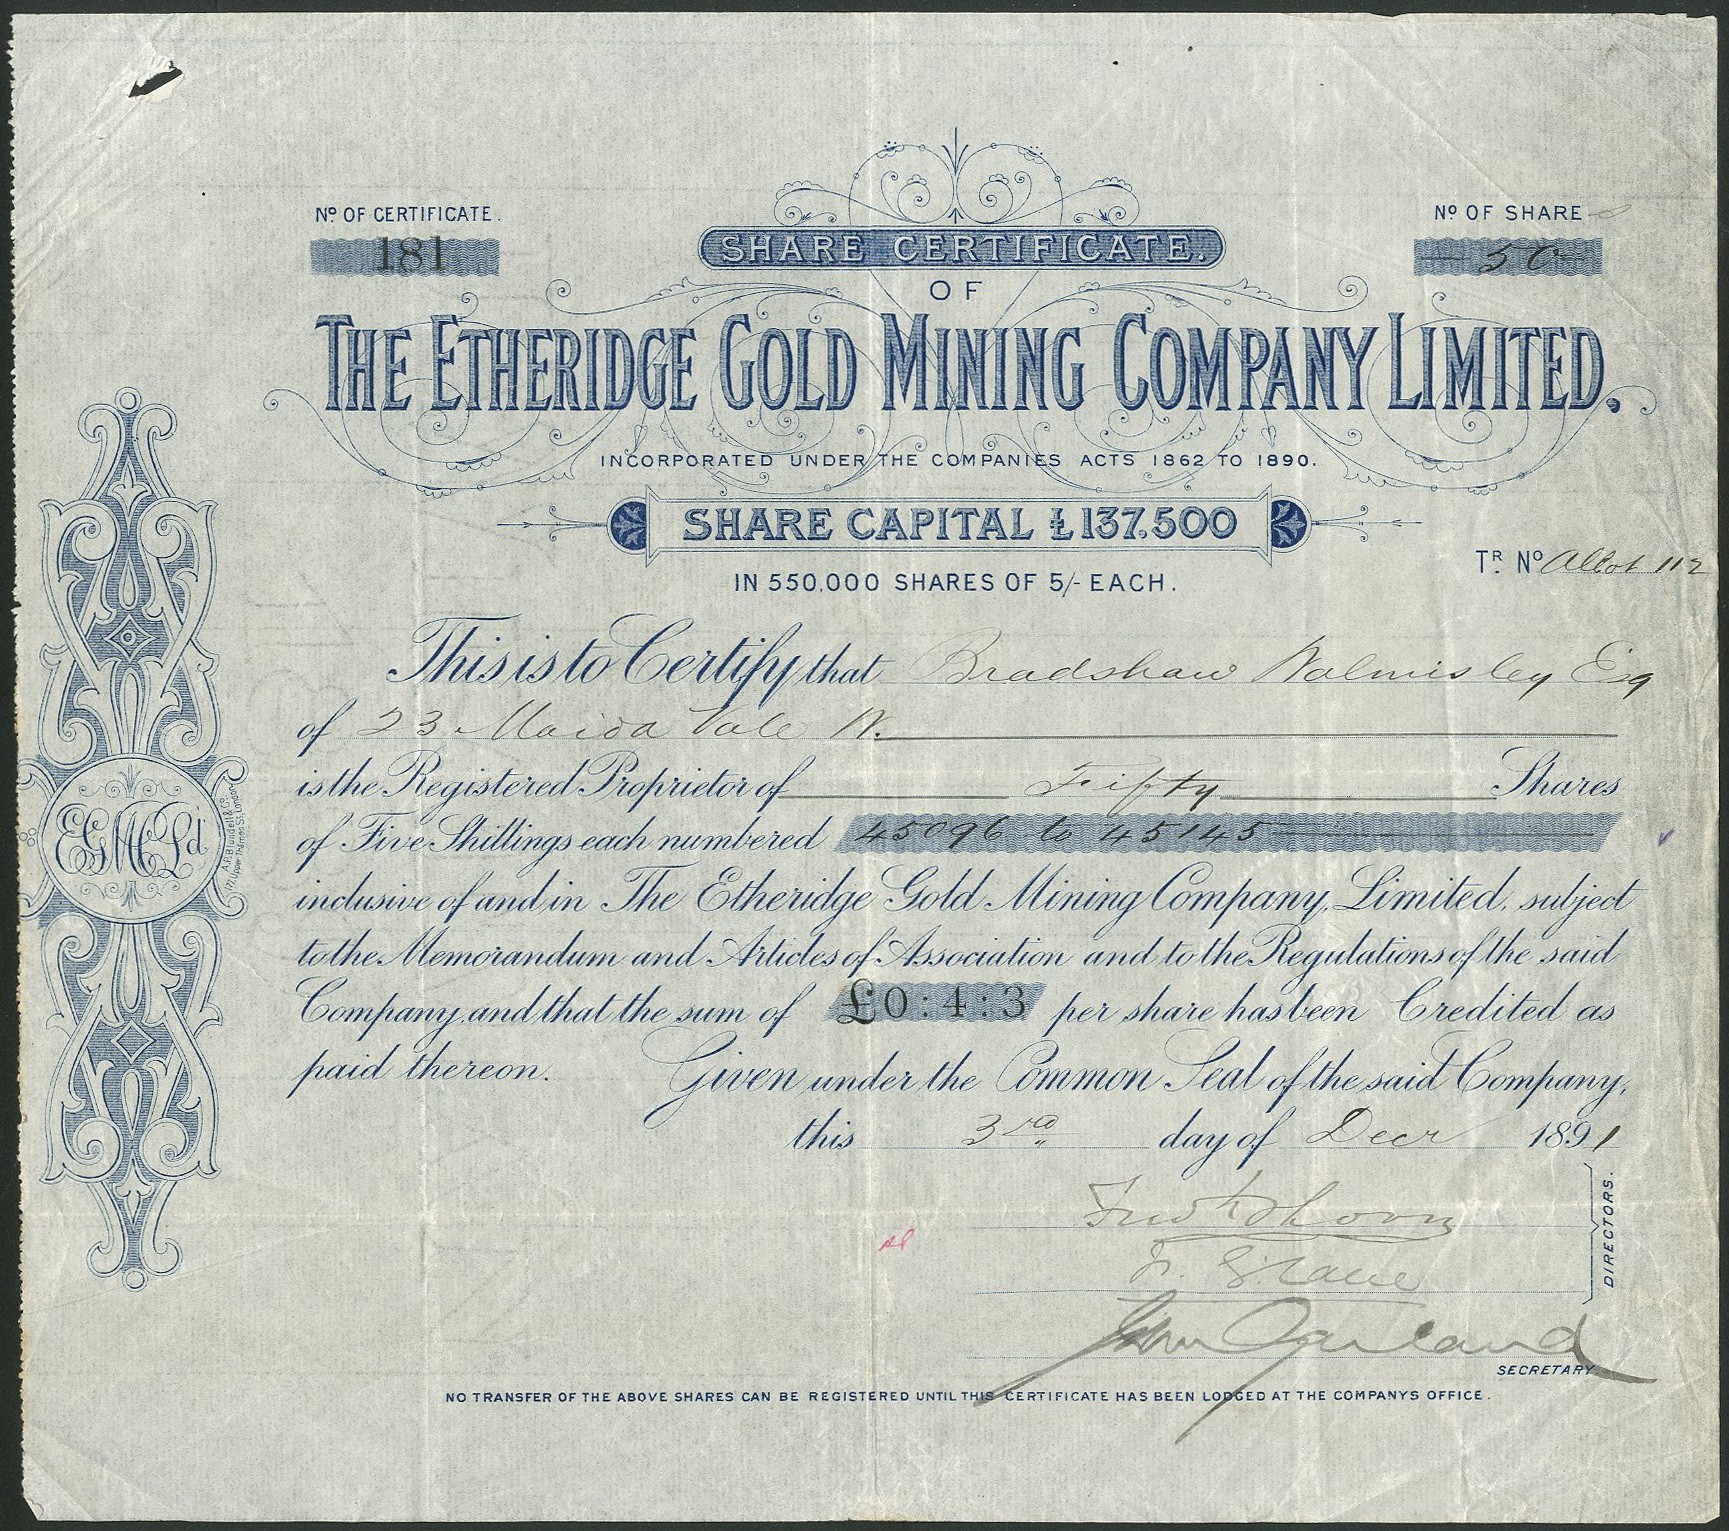 Nº OF CERTIFICATE.
181
Nº OF SHARES
50
SHARE CERTIFICATE.
OF
THE ETHERIDGE GOLD MINING COMPANY LIMITED.
INCORPORATED UNDER THE COMPANIES ACTS 1862 TO 1890.
SHARE CAPITAL £137,500
IN 550,000 SHARES OF 5/- EACH.
TR. Nº Allot 112
This is to Certify that Bradshaw Walmisley Esq
of 23 Maida Vale W.
is the Registered Proprietor of Fifty Shares
of Five Shillings each numbered 45096 to 45145
inclusive of and in The Etheridge Gold Mining Company, Limited, subject
to the Memorandum and Articles of Association and to the Regulations of the said
Company, and that the sum of £0:4:3 per share has been Credited as
paid thereon. Given under the Common Seal of the said Company,
this 3rd day of Decr 1891
DIRECTORS.
John Garland
SECRETARY.
NO TRANSFER OF THE ABOVE SHARES CAN BE REGISTERED UNTIL THIS CERTIFICATE HAS BEEN LODGED AT THE COMPANYS OFFICE.
EGMCLd
A.P. Blundell & Co.
177, Upper Thames St. London